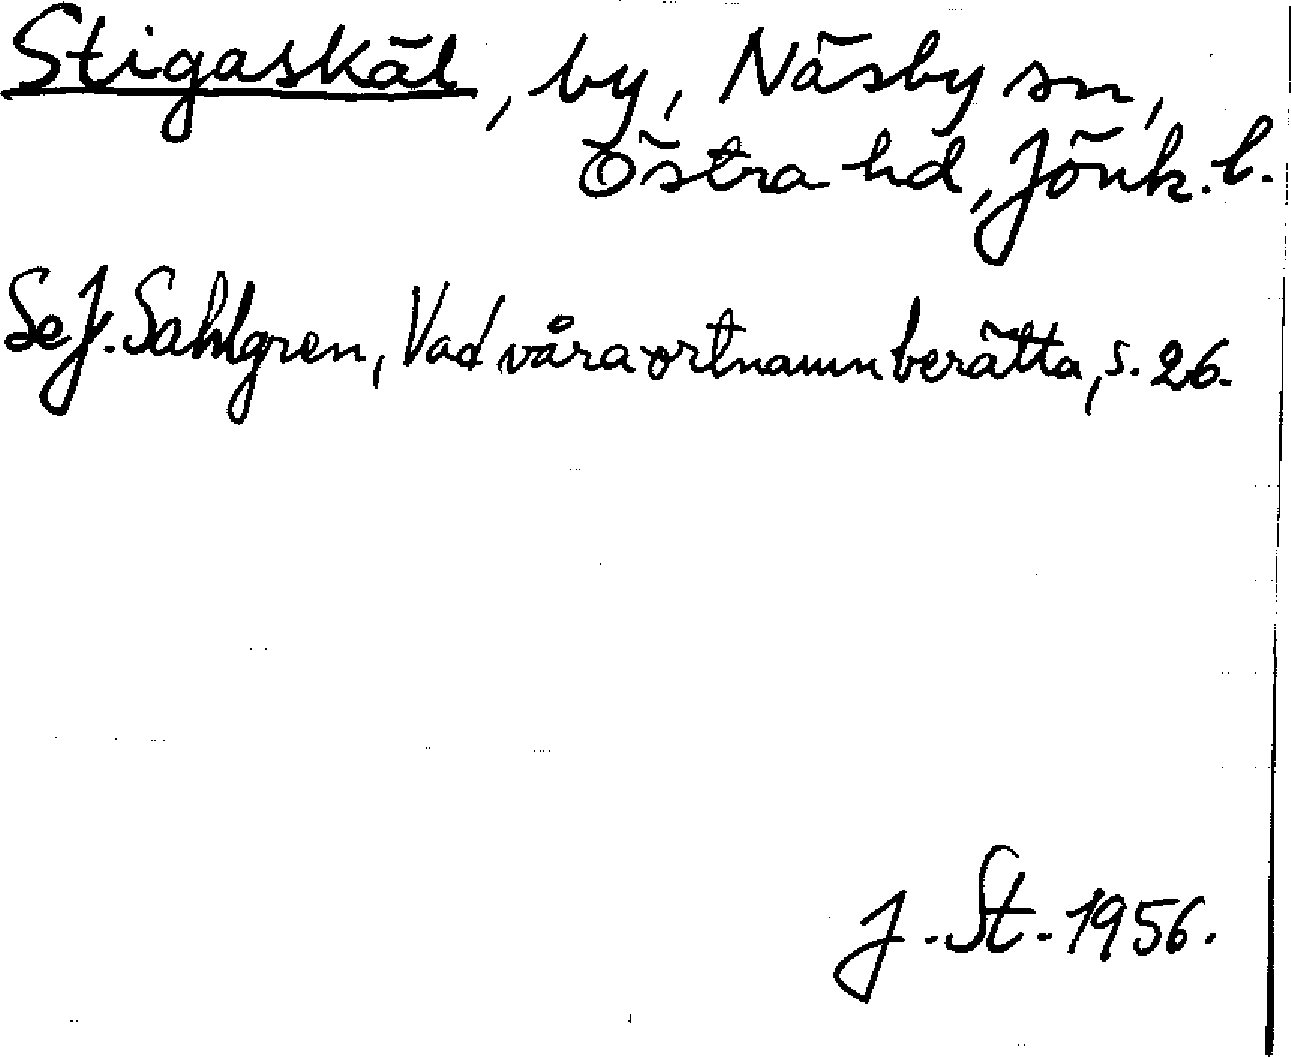 Stigaskäl, by, Näsby sn,
Östra hd, Jönk. l.
Se J. Sahlgren, Vad våra ortnamn berätta, s. 26.
J. St. 1956.